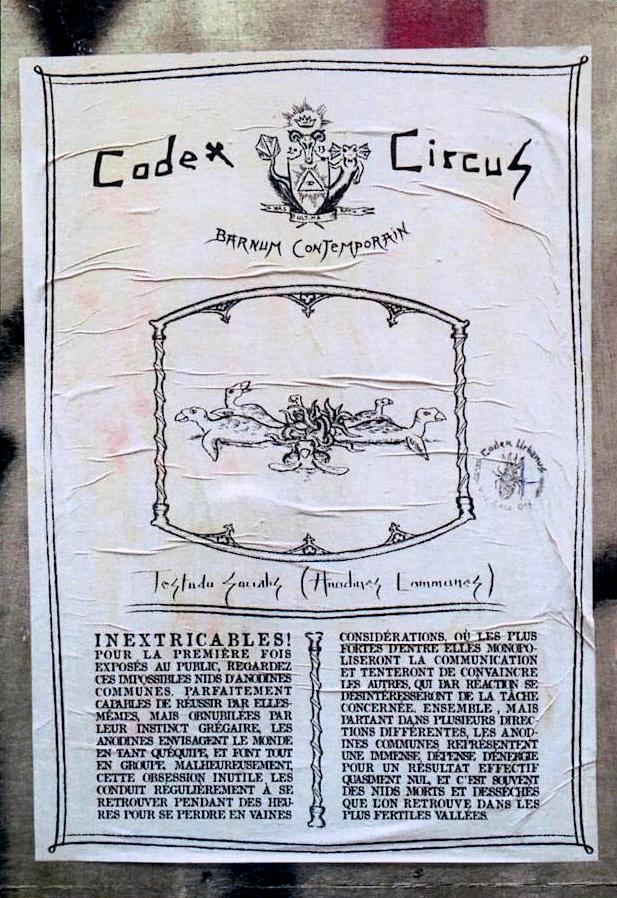 Codex Circus
ULTIMA
BARNUM CONTEMPORAIN
Codex Urbanus
Testudo Socialis (Anodines Communes)
INEXTRICABLES!
POUR LA PREMIÈRE FOIS
EXPOSÉS AU PUBLIC, REGARDEZ
CES IMPOSSIBLES NIDS D'ANODINES
COMMUNES. PARFAITEMENT
CAPABLES DE RÉUSSIR PAR ELLES-
MÊMES, MAIS OBNUBILÉES PAR
LEUR INSTINCT GRÉGAIRE, LES
ANODINES ENVISAGENT LE MONDE
EN TANT QU'ÉQUIPE, ET FONT TOUT
EN GROUPE. MALHEUREUSEMENT,
CETTE OBSESSION INUTILE LES
CONDUIT RÉGULIÈREMENT À SE
RETROUVER PENDANT DES HEU-
RES POUR SE PERDRE EN VAINES
CONSIDÉRATIONS, OÙ LES PLUS
FORTES D'ENTRE ELLES MONOPO-
LISERONT LA COMMUNICATION
ET TENTERONT DE CONVAINCRE
LES AUTRES, QUI PAR RÉACTION SE
DÉSINTÉRESSERONT DE LA TÂCHE
CONCERNÉE. ENSEMBLE, MAIS
PARTANT DANS PLUSIEURS DIREC-
TIONS DIFFÉRENTES, LES ANOD-
INES COMMUNES REPRÉSENTENT
UNE IMMENSE DÉPENSE D'ÉNERGIE
POUR UN RÉSULTAT EFFECTIF
QUASIMENT NUL, ET C'EST SOUVENT
DES NIDS MORTS ET DESSÉCHÉS
QUE L'ON RETROUVE DANS LES
PLUS FERTILES VALLÉES.